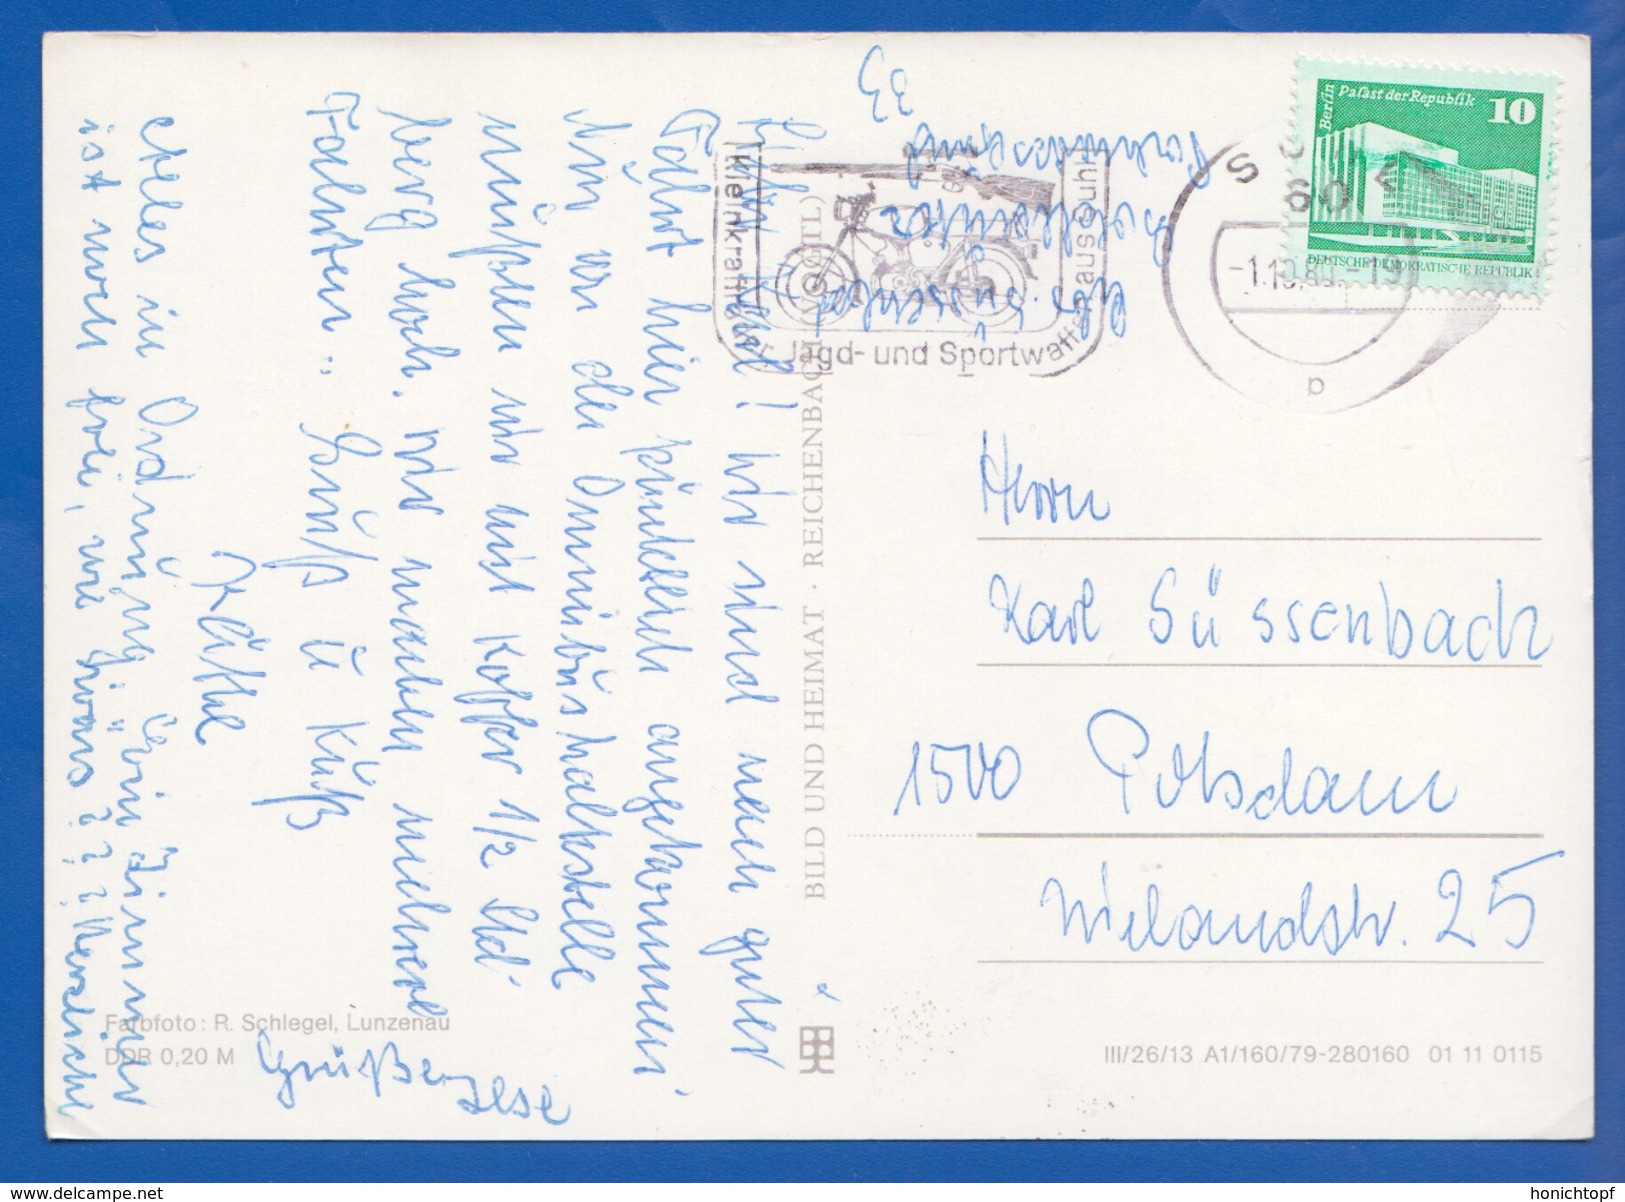 Abs. Süssenbach
33
Mein Karl! Wir sind nach guter
Fahrt hier pünktlich angekommen.
Nur von der Omnibushaltestelle
mußten wir mit Koffer 1/2 Std.
berg hoch. Wir machen mehrere
Fahrten. Gruß u Kuß
Käthe
Grüße Ilse
alles in Ordnung. Ein Zimmer
ist noch frei, wie wars???
BILD UND HEIMAT · REICHENBACH (VOGTL)
Farbfoto: R. Schlegel, Lunzenau
DDR 0,20 M
Kleinkrafträder Jagd- und Sportwaffen aus Suhl
SUHL
60
-1.10.80.-19
p
Berlin Palast der Republik 10
DEUTSCHE DEMOKRATISCHE REPUBLIK
Herrn
Karl Süssenbach
1500 Potsdam
Wielandstr. 25
III/26/13 A1/160/79-280160 01 11 0115
honichtopf